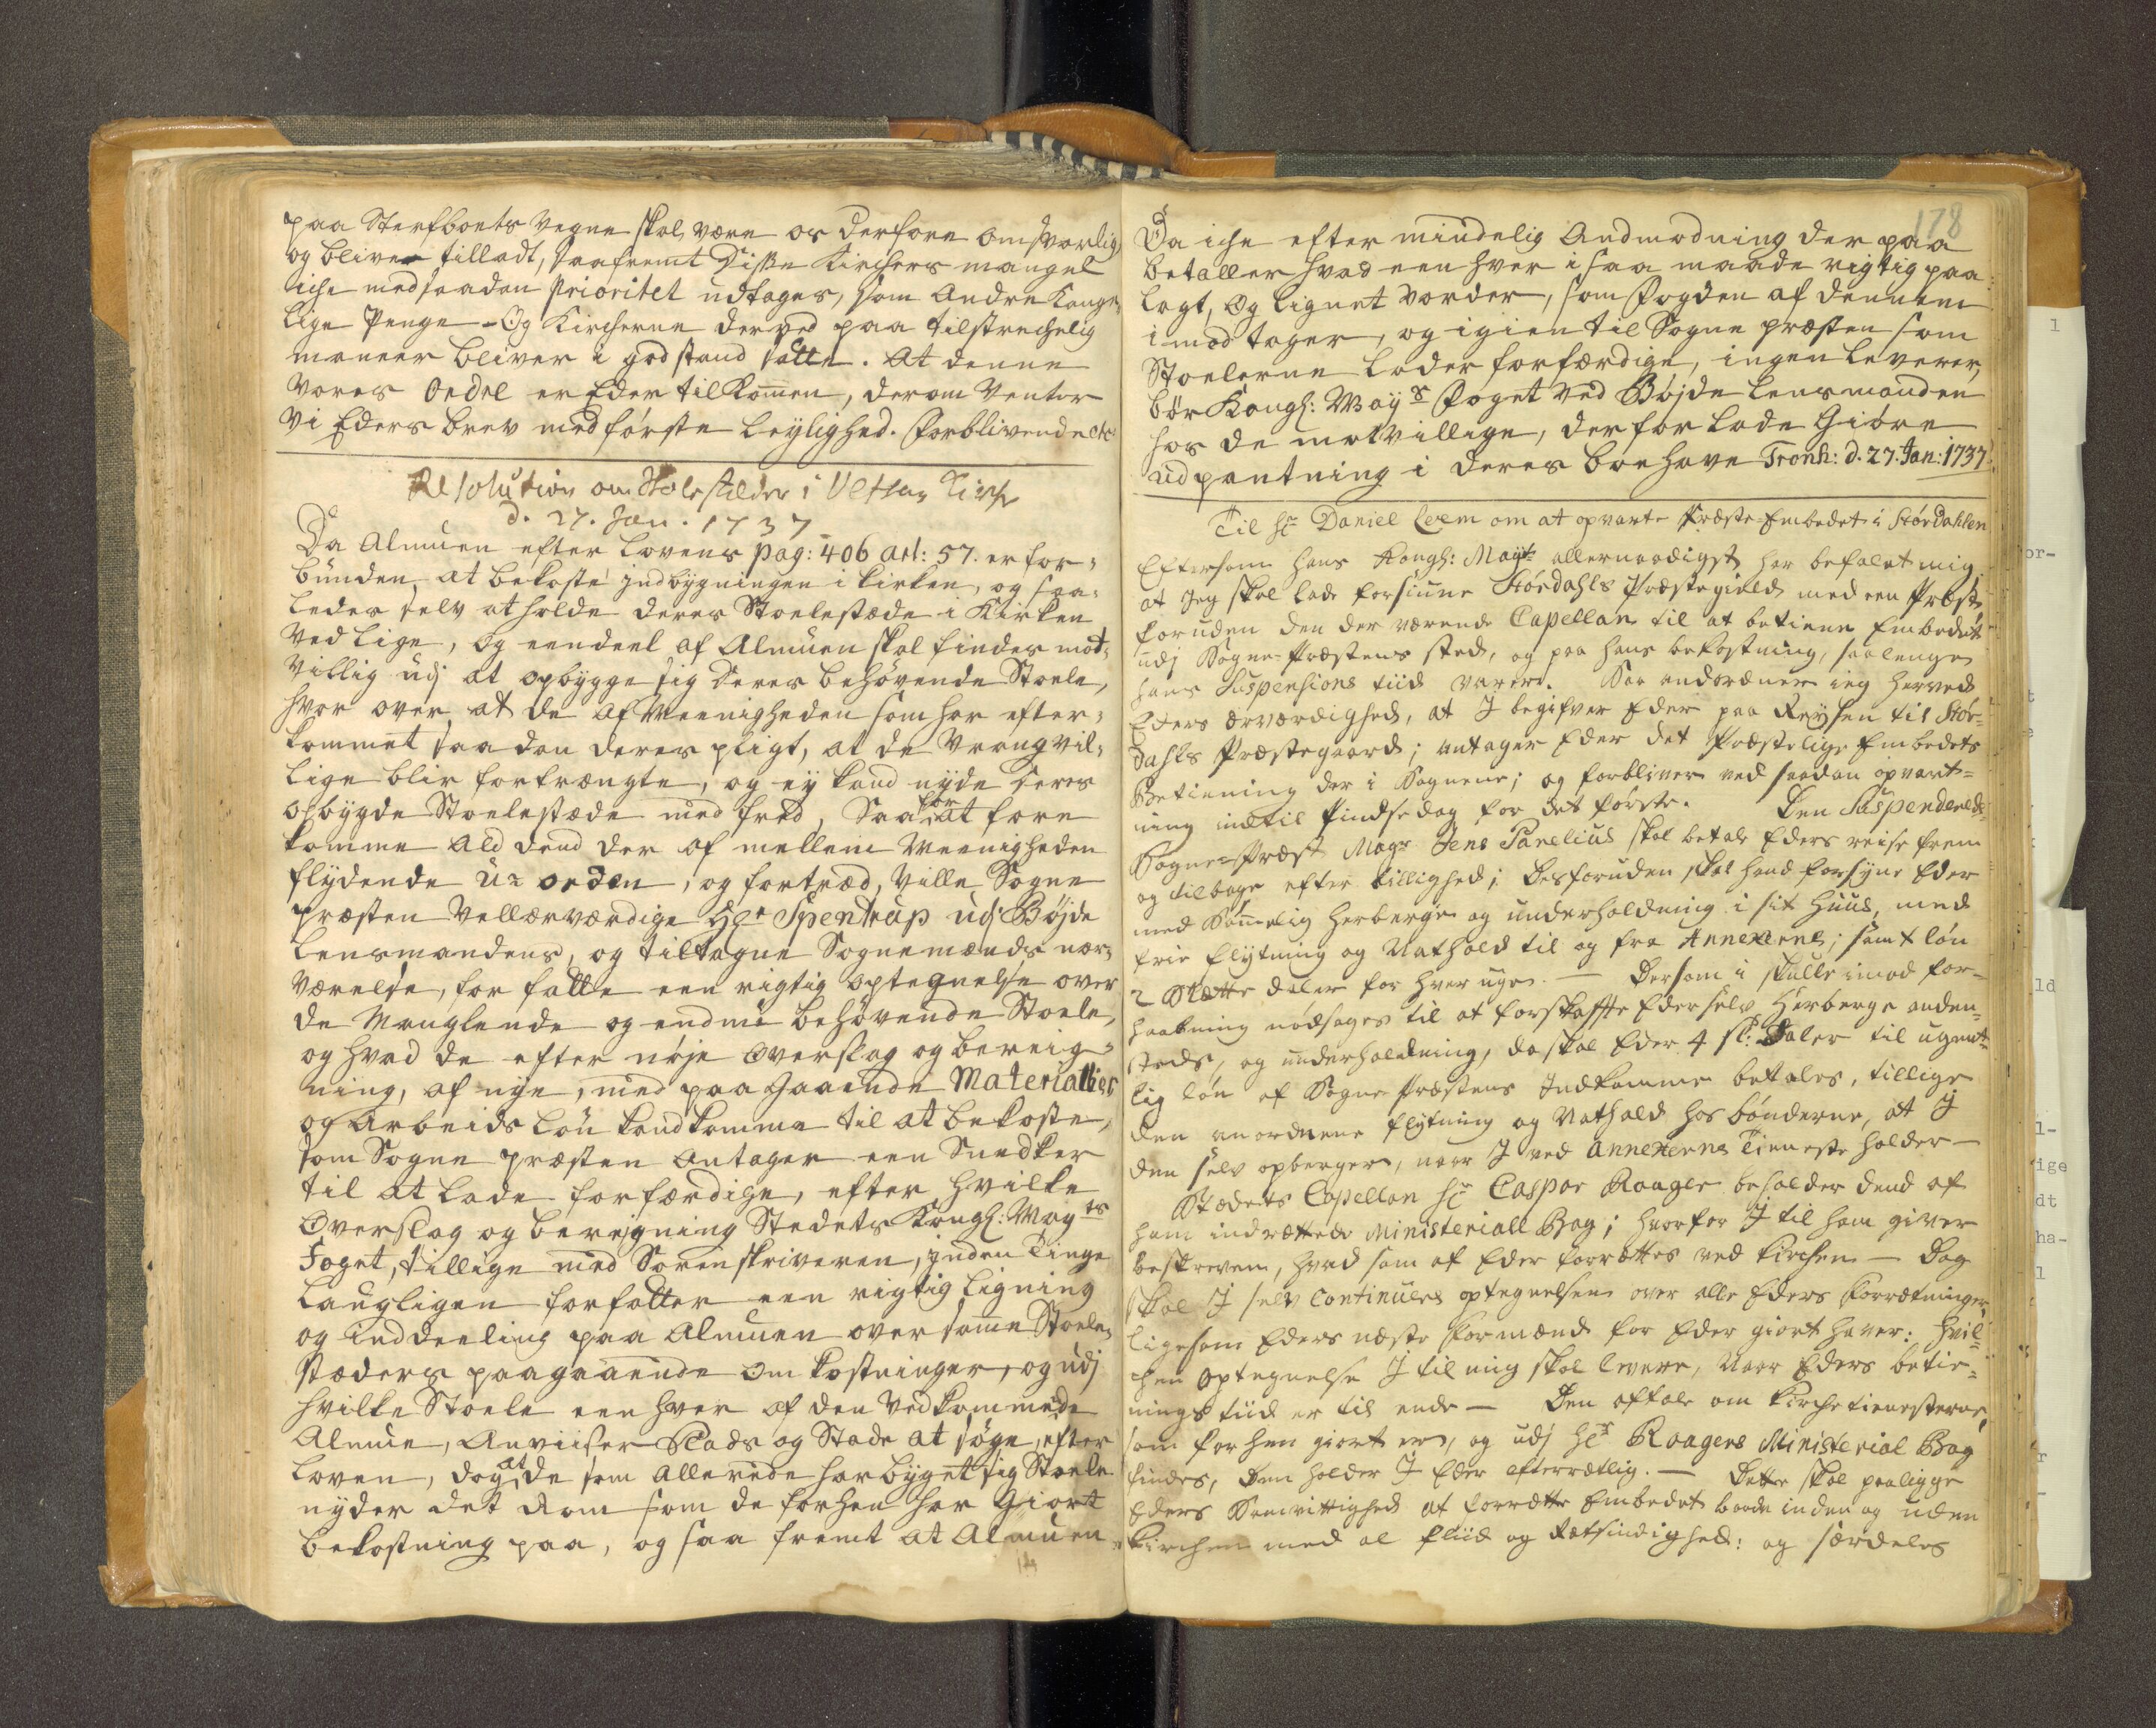 paa Sterfboets vegne skal være os derfore ansvarlig
og bliver tilladt, saafremt disse Kirchers mangel
iche med saadan prioritet udtages, som andre Konge¬
lige Penge - Og Kircherne derved paa tilstrechelig
maneer bliver i god stand satte. At denne
vores Ordre er Eder tilkommen, derom venter
vi Eders brev med förste leylighed. Forblivende etc
Resolution om Stolestæder i Kirche
d. 27. Jan. 1737
Da Almuen efter Lovens pag: 406 art: 57. er for¬
bunden at bekoste indbygningen i kirken, og saa¬
ledes selv at holde deres Stoelestæde i Kirken
ved lige, og eendeel af Almuen skal findes mod¬
villig udj at opbygge sig deres behøvende Stoele,
hvor over at de af Meenigheden som har efter¬
kommet saadan deres pligt, at de vrangvil¬
lige blir fortrængte, og ey kand nyde deres
opbygde Stoelestæde med fred, Saa for at fore
komme ald dend der af mellem Meenigheden
flydende U-orden, og fortræd, ville Sogne
præsten Vellærværdige Hr Spentrup udj Böjde
Lensmandens, og tiltagne Sognemænds nær¬
værelse, for fatte een rigtig optegnelse over
de Manglende og endnu behøvende Stoele,
og hvad de efter nøje overslag og bereig¬
ning, af nye, med paa gaaende Materialier
og Arbeids lön kand komme til at bekoste,
som Sogne præsten antager een Snedker
til at lade forfærdige, efter hvilke
Overslag og bereigning Stedets Kongl: May ts
Foget, tillige med Sorenskriveren, inden Tinge
laugligen forfatter een rigtig ligning
og inddeeling paa Almuen over samme Stoele¬
stæders paagaaende om kostninger, og udj
hvilke Stoele een hver af den vedkommende
Almue, anviiser Plads og Stade at söge, efter
loven, dog at de som allerede har bygget sig Stoele
nyder det Rom som de forhen har Giort
bekostning paa, og saa fremt at Almuen
14
178
Da iche efter mindelig Andmodning der paa
betaller hvad een hver i saa maade rigtig paa
lagt, og lignet vorder, som Fogden af dennem
imod tager, og igien til Sogne præsten som
Stoelerne lader forfærdige, ingen leverer,
bör Kongl: May ts Foget ved Böjde lensmanden
hos de motvillige, derfor lade Giöre
udpantning i deres boehave Tronh: d. 27. Jan: 1737
Til Hr Daniel Leem om at opvarte Præste-Embedet i Stördahlen
Eftersom hans Kongl: Mayt: allernaadigst har befalet mig
at jeg skal lade forsiune Stördahls Præstegield med een Præst
foruden den der værende Capellan til at betiene Embedet
udj Sogne-Præstens sted, og paa hans bekostning, saalenge
hans Suspensions tiid varer. Saa andordner ieg herved
Eders ærværdighed, at I begifver Eder paa Reysen til Stör¬
dahls Præstegaard; antager Eder det Præstelige Embedets
Betiening der i Sognene; og forbliver ved saadan opvart¬
ning indtil Pindsedag for det förste. Den Suspenderede
Sogne-Præst Magr Jens Parelius skal betale Eders reise frem
og tilbage efter billighed; Desforuden skal hand forsyne Eder
med Sømmelig herberge og underholdning i sit Huus, med
frie flytning og Nathold til og fra Annexerne; samt lön
2 Slætte daler for hver uge. — Dersom i skulle imod for¬
haabning nödsages til at forskaffe Eder selv Herberge anden¬
steds, og underholdning, da skal Eder 4 sl: Daler til ugent¬
lig lön af Sogne-Præstens Indkomme betales, tillige
den anordnede flytning og Nathold hos bönderne, at I
den selv opberger, naar I ved Annexernes Tieneste holder —
Stædets Capellan Hr Caspar Raager beholder dend af
ham indrættede Ministeriall Bog; hvorfor I til ham giver
beskreven, hvad som af Eder forrættes ved kirchen — Dog
skal I selv Continuere optegnelsen over alle Eders forrætninger
ligesom Eders næste Formænd for Eder giort haver: hvil¬
chen optegnelse I til mig skal levere, Naar Eders betie¬
nings tiid er til ende — Den aftale om Kirche tienesterne,
som forhen giort er, og udj Hr Raagers Ministerial Bog
findes, Den holder I Eder efterrættlig. — Dette skal paaligge
Eders Samvittighed at forrætte Embedet baade inden og uden
kirchen med al fliid og Rætsindighed: og særdeles